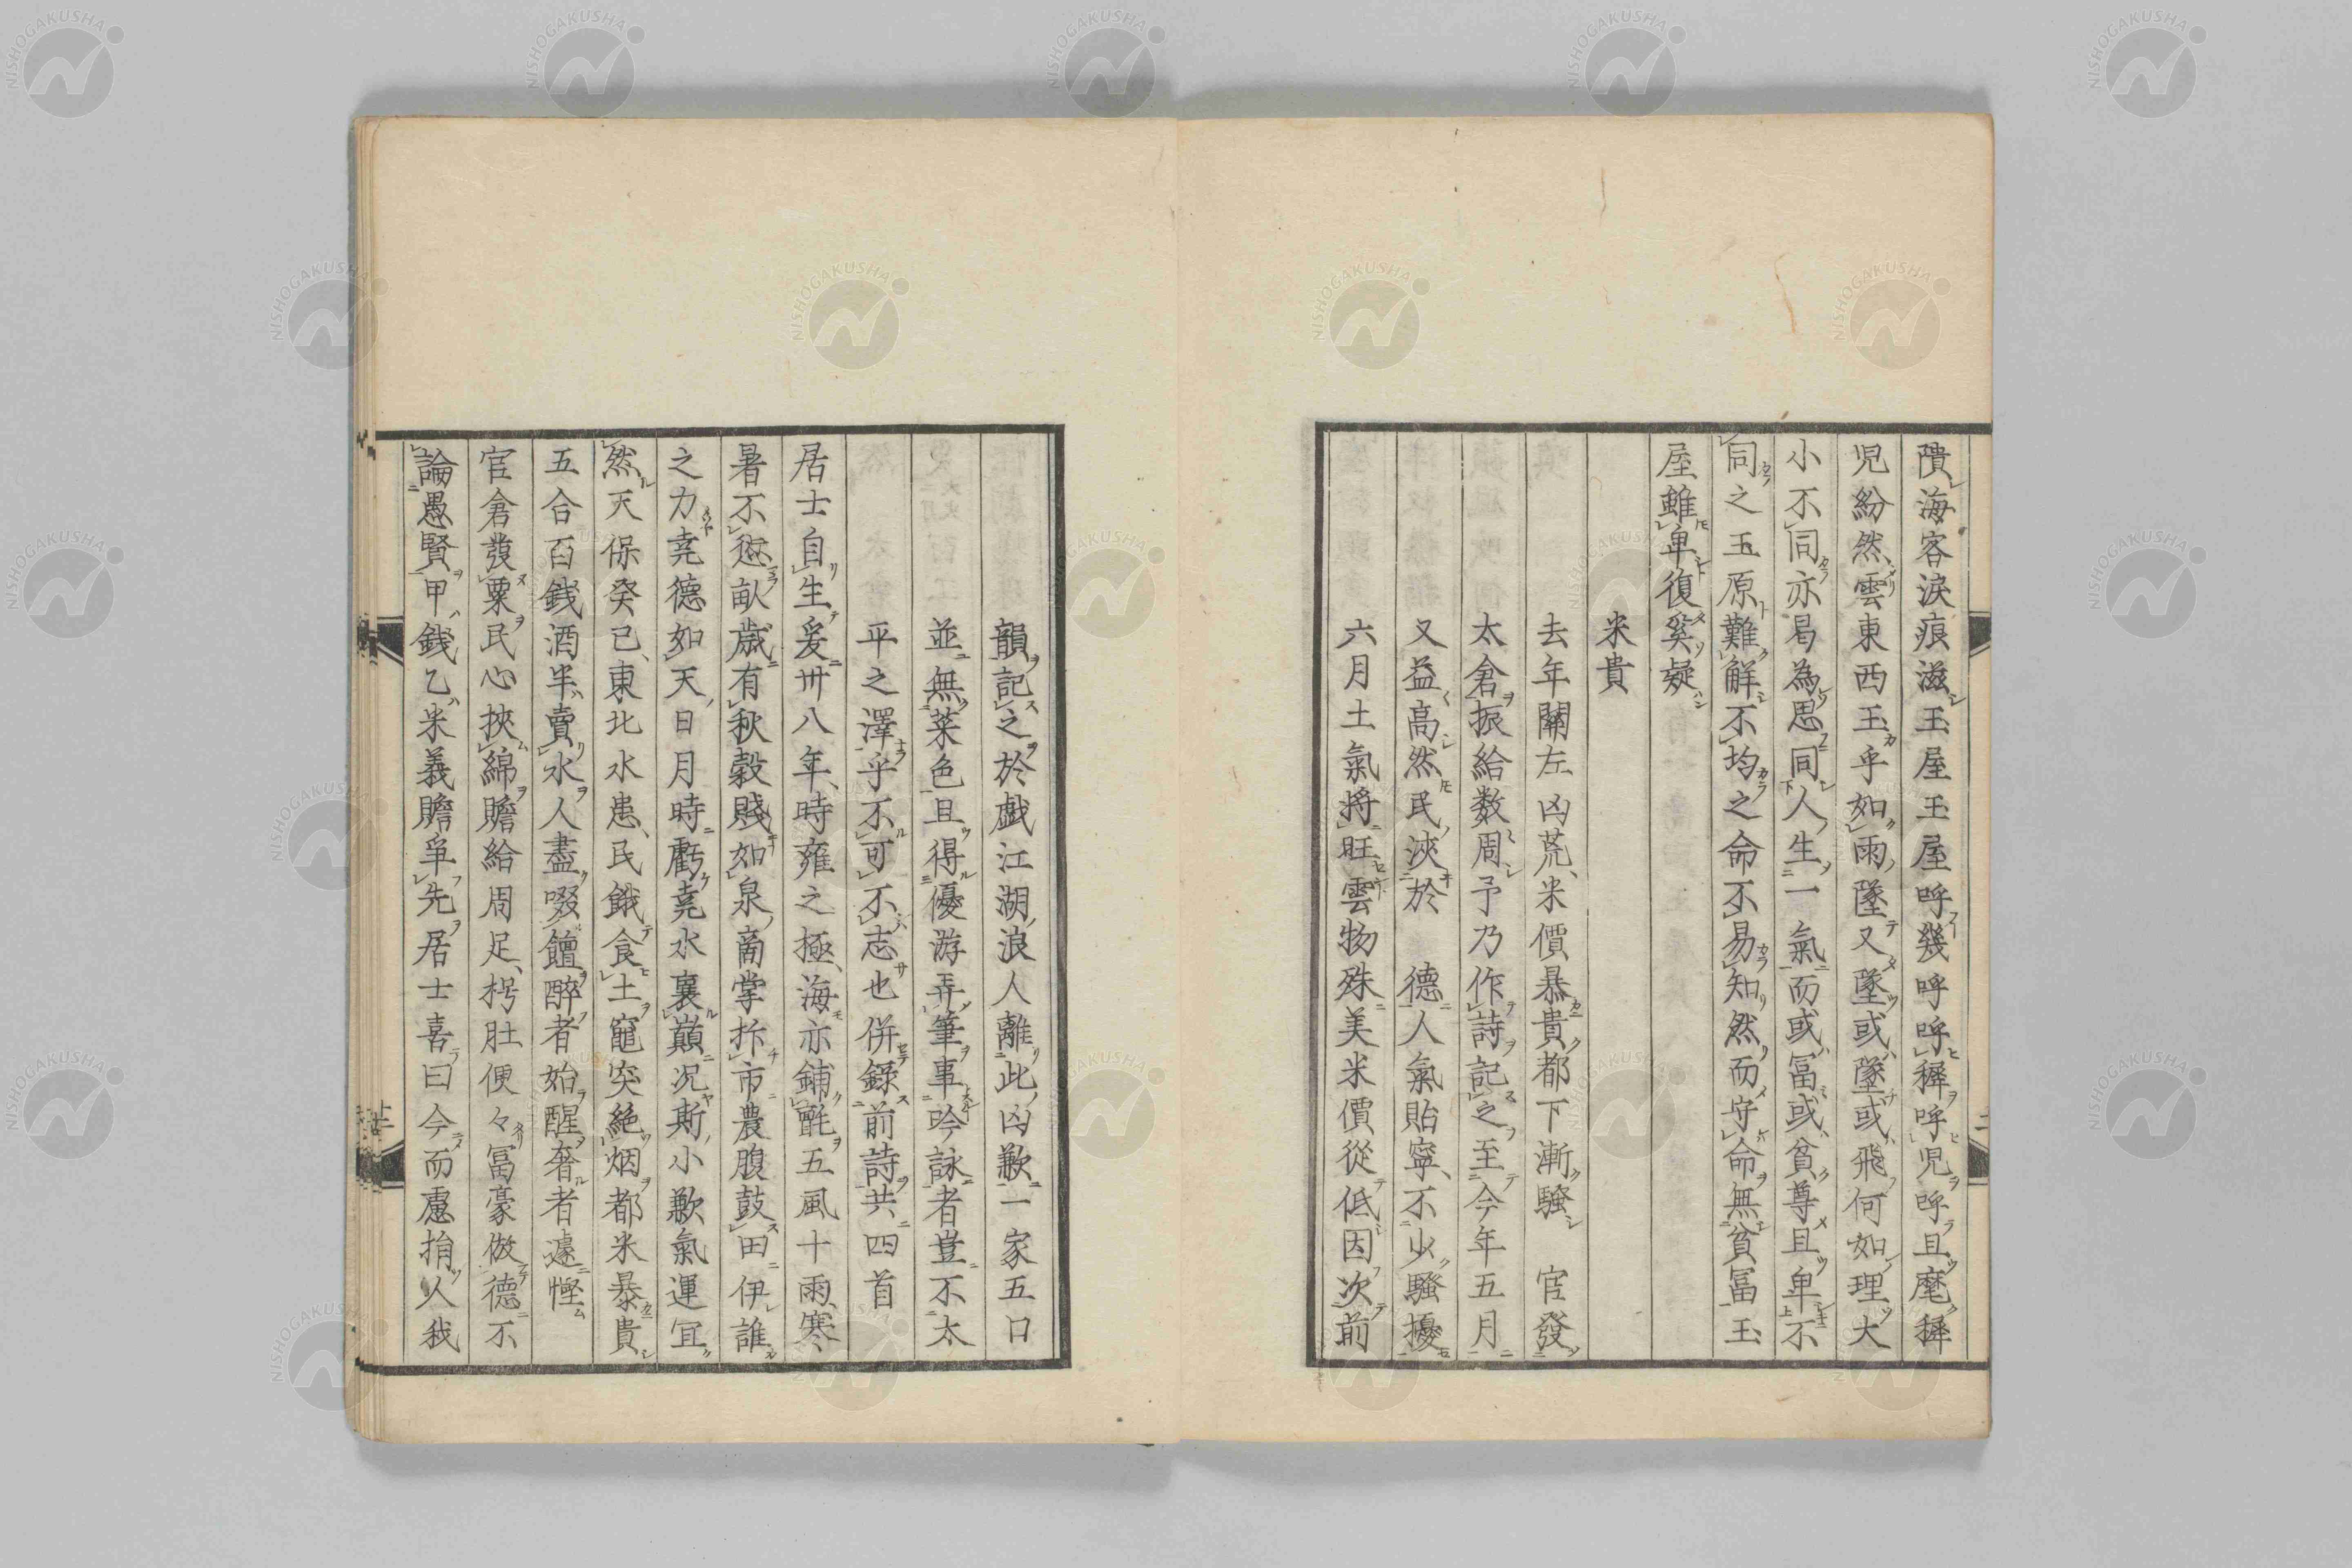 隤海客淚痕滋玉屋玉屋呼幾呼呼穉呼児呼且麾穉
児紛然雲東西玉乎如雨墜又墜或墜或飛何如理大
小不同亦曷為思同人生一氣而或冨或貧尊且卑不
同之玉原難解不均之命不易知然而守命無貧冨玉
屋雖卑復奚疑
米貴
去年關左凶荒米價暴貴都下漸騒　官發
太倉振給数周予乃作詩記之至今年五月
又益高然民浹於　德人氣貽寧不少騒擾
六月土氣将旺雲物殊美米價従低因次前
韻記之於戯江湖浪人離此凶歉一家五口
並無菜色且得優游弄筆事吟詠者豈不太
平之澤乎不可不志也併錄前詩共四首
居士自生爰卅八年時雍之極海亦鋪氈五風十雨寒
暑不愆畝歳有秋穀賤如泉商掌抃市農腹鼓田伊誰
之力堯德如天日月時虧堯水襄巓况斯小歉氣運冝
然天保癸巳東北水患民餓食土竈突絶烟都米暴貴
五合百銭酒半賣水人盡啜饘醉者始醒奢者遽慳
官倉發粟民心挾綿贍給周足枵肚便々冨豪倣德不
論愚賢甲銭乙米義贍爭先居士喜曰今而慮捐人我